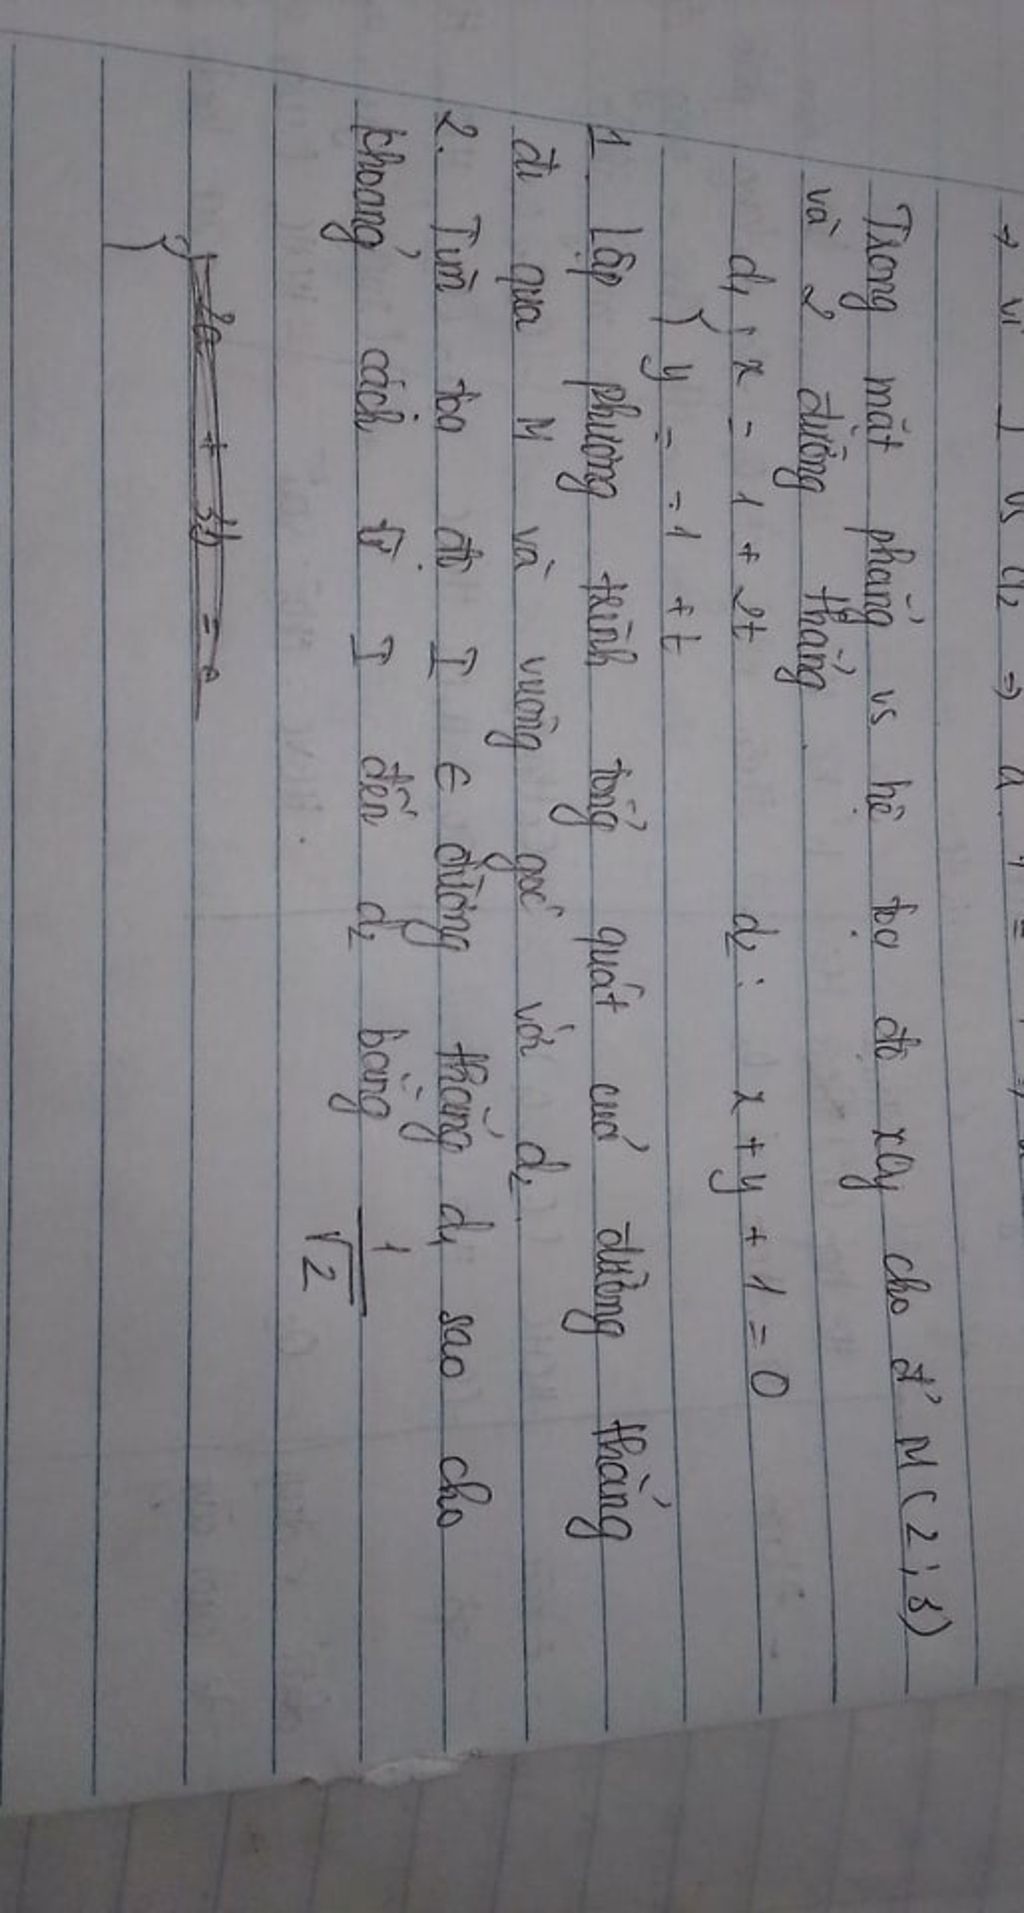 → vì
Trong mặt phẳng vs hệ tọa độ xOy cho đ' M(2; 3)
và 2 đường thẳng
d₁ { x = 1 + 2t d₂: x + y + 1 = 0
{ y = -1 + t
1. Lập phương trình tổng quát của đường thẳng
đi qua M và vuông góc với d₂.
2. Tìm tọa độ I ∈ đường thẳng d₁ sao cho
khoảng cách từ I đến d₂ bằng 1/√2